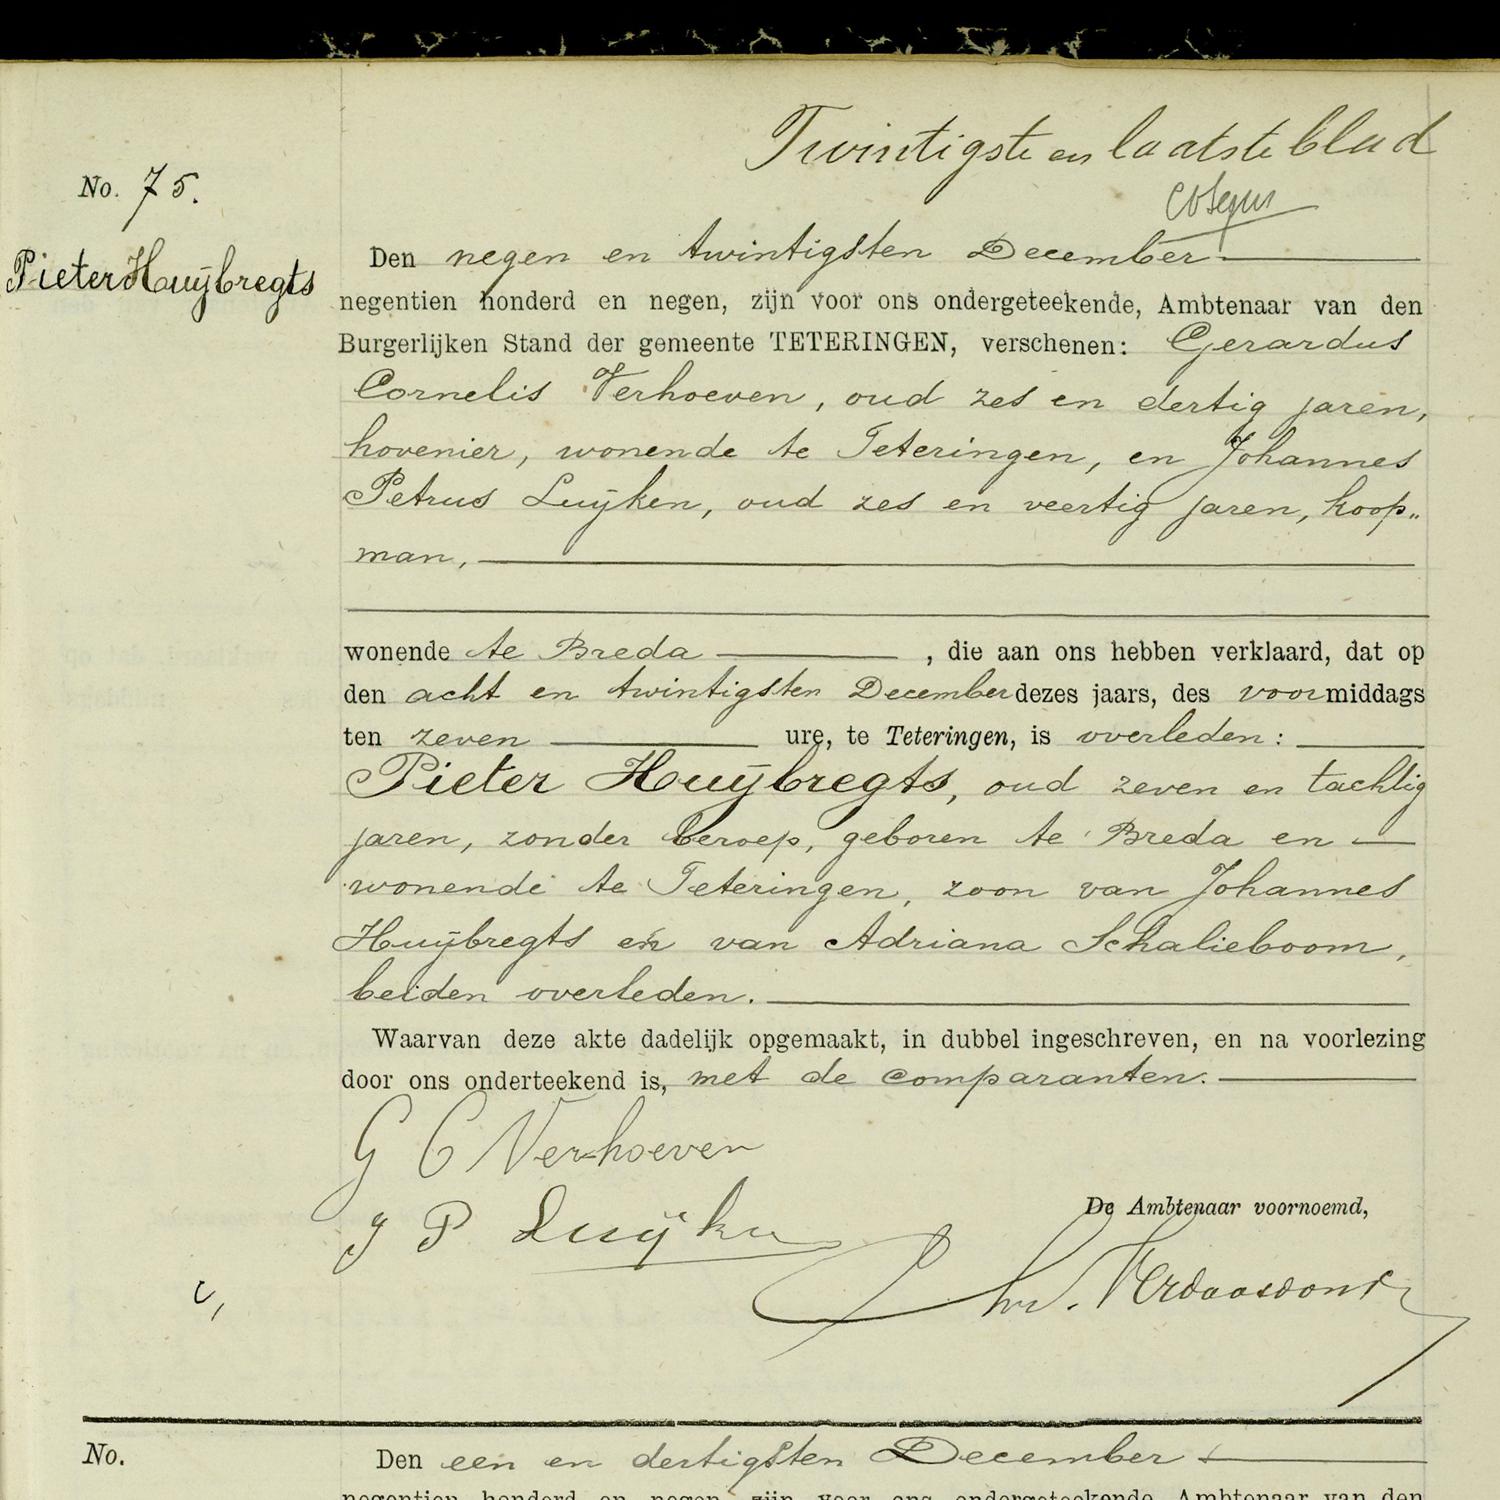 Twintigste en laatste blad
No. 75.
Pieter Huijbregts
Den negen en twintigsten December
negentien honderd en negen, zijn voor ons ondergeteekende, Ambtenaar van den
Burgerlijken Stand der gemeente TETERINGEN, verschenen: Gerardus
Cornelis Verhoeven, oud zes en dertig jaren,
hovenier, wonende te Teteringen, en Johannes
Petrus Luijken, oud zes en veertig jaren, koop„
man,
wonende te Breda , die aan ons hebben verklaard, dat op
den acht en twintigsten December dezes jaars, des voormiddags
ten zeven ure, te Teteringen, is overleden:
Pieter Huijbregts, oud zeven en tachtig
jaren, zonder beroep, geboren te Breda en
wonende te Teteringen, zoon van Johannes
Huijbregts en van Adriana Schalieboom,
beiden overleden.
Waarvan deze akte dadelijk opgemaakt, in dubbel ingeschreven, en na voorlezing
door ons onderteekend is, met de comparanten.
G C Verhoeven
J P Luijken
De Ambtenaar voornoemd,
Chr. Verdaasdonk
No.
Den een en dertigsten December
negentien honderd en negen, zijn voor ons ondergeteekende, Ambtenaar van den